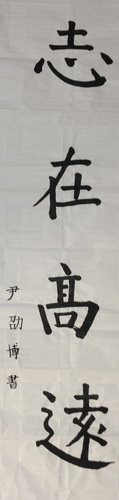 志在高遠
尹劭博書